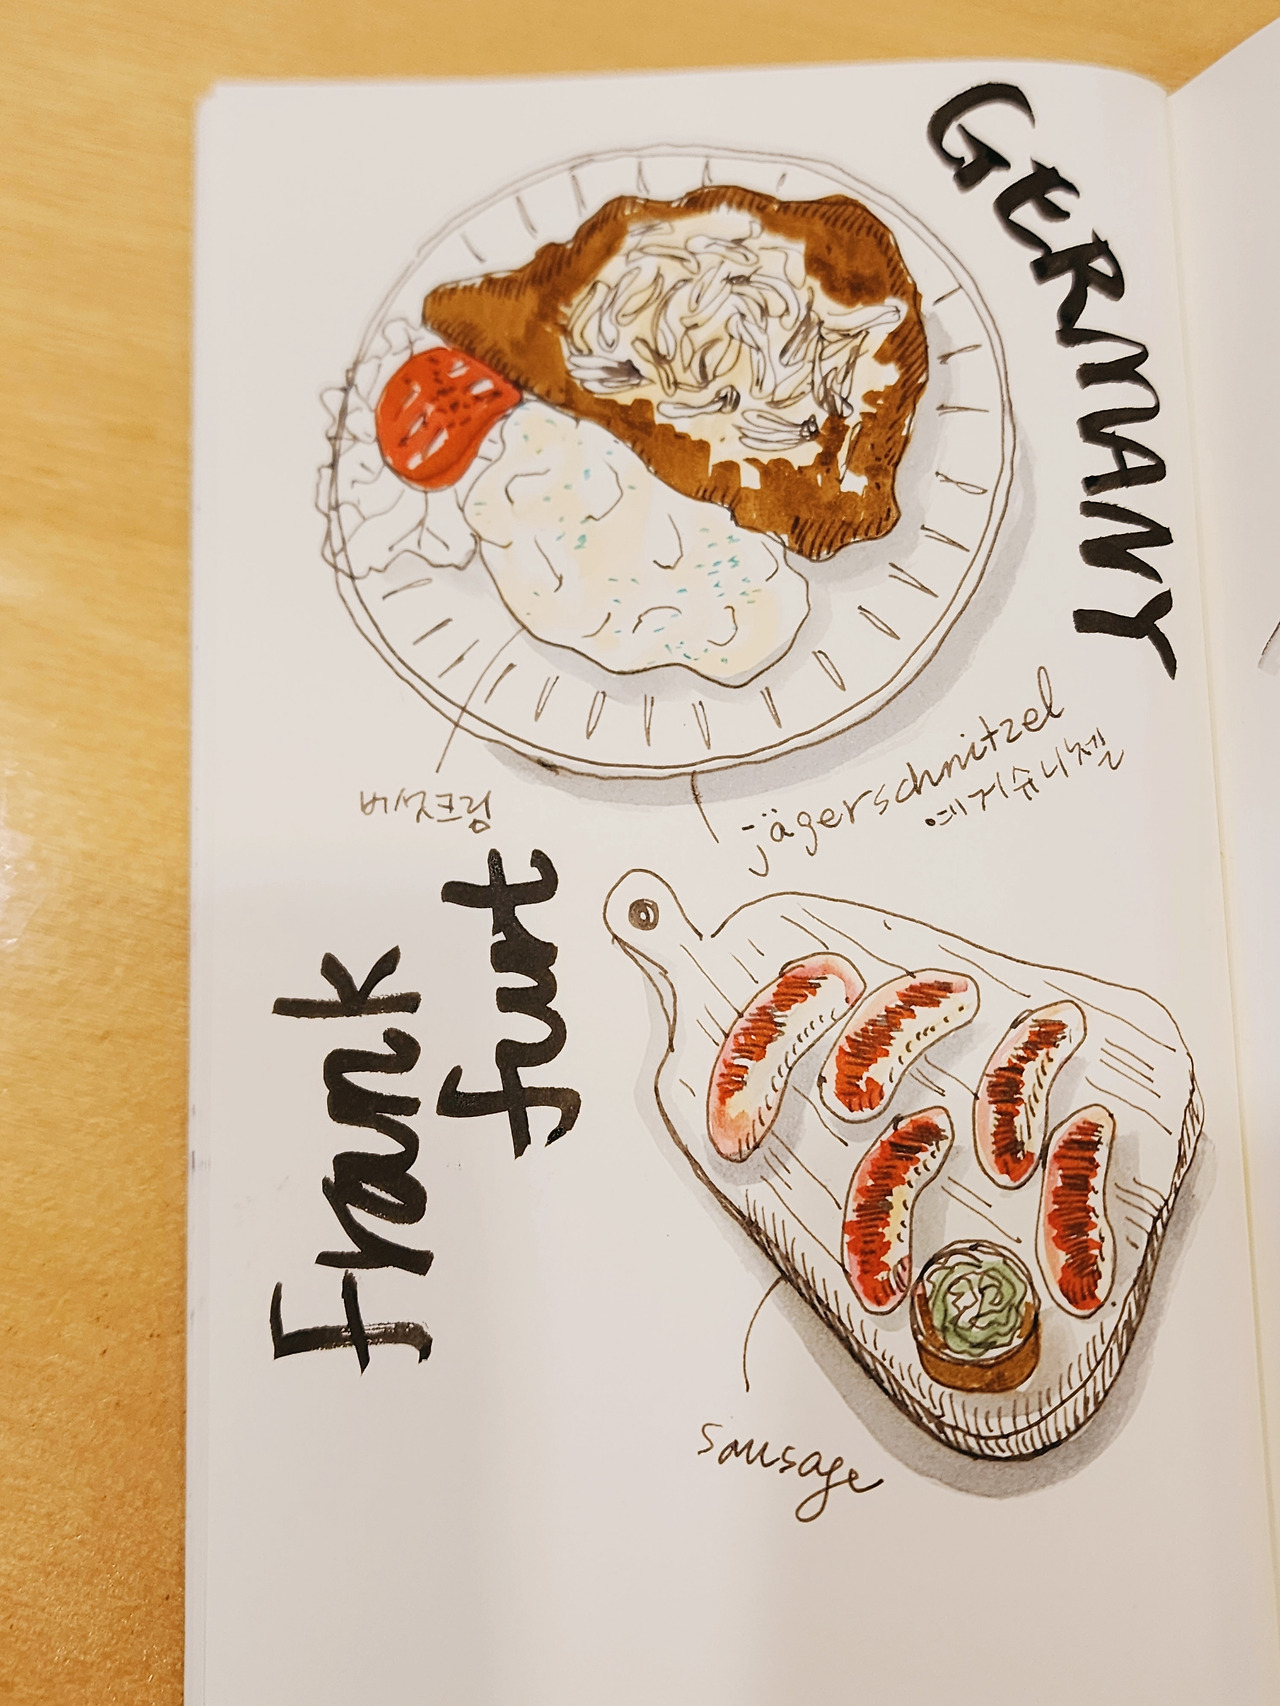 GERMANY
버섯크림
jägerschnitzel
예거슈니첼
Frank
furt
sausage